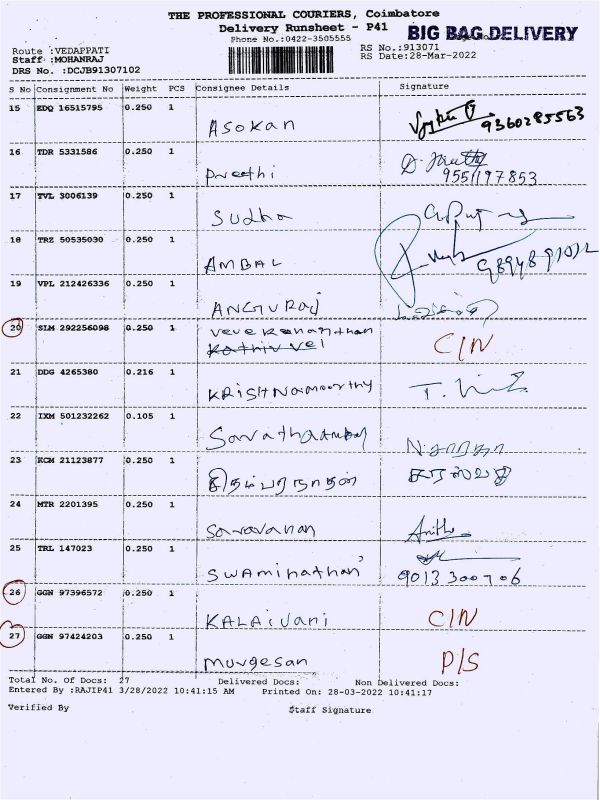 THE PROFESSIONAL COURIERS, Coimbatore
Delivery Runsheet - P41
BIG BAG DELIVERY
Phone No.:0422-3505555
Route :VEDAPPATI
RS No.:913071
Staff :MOHANRAJ
RS Date:28-Mar-2022
DRS No. :DCJB91307102
S No Consignment No Weight PCS Consignee Details Signature
15 EDQ 16515795 0.250 1
ASOKAN 9360285563
16 TDR 5331586 0.250 1
Preethi
9551197853
17 TVL 3006139 0.250 1
Sudha
18 TRZ 50535030 0.250 1
AMBAL
19 VPL 212426336 0.250 1
ANGURAJ
20 SLM 292256098 0.250 1
C/N
21 DDG 4265380 0.216 1
KRISHNAMOORTHY
22 IXM 501232262 0.105 1
N. சாரதா
23 KCM 21123877 0.250 1
சரஸ்வதி
24 MTR 2201395 0.250 1
Saravanan Anitha
25 TRL 147023 0.250 1
SWAMINATHAN 9013300706
26 GGN 97396572 0.250 1
KALAIVANI C/N
27 GGN 97424203 0.250 1
Murgesan P/S
Total No. Of Docs: 27 Delivered Docs: Non Delivered Docs:
Entered By :RAJIP41 3/28/2022 10:41:15 AM Printed On: 28-03-2022 10:41:17
Verified By Staff Signature